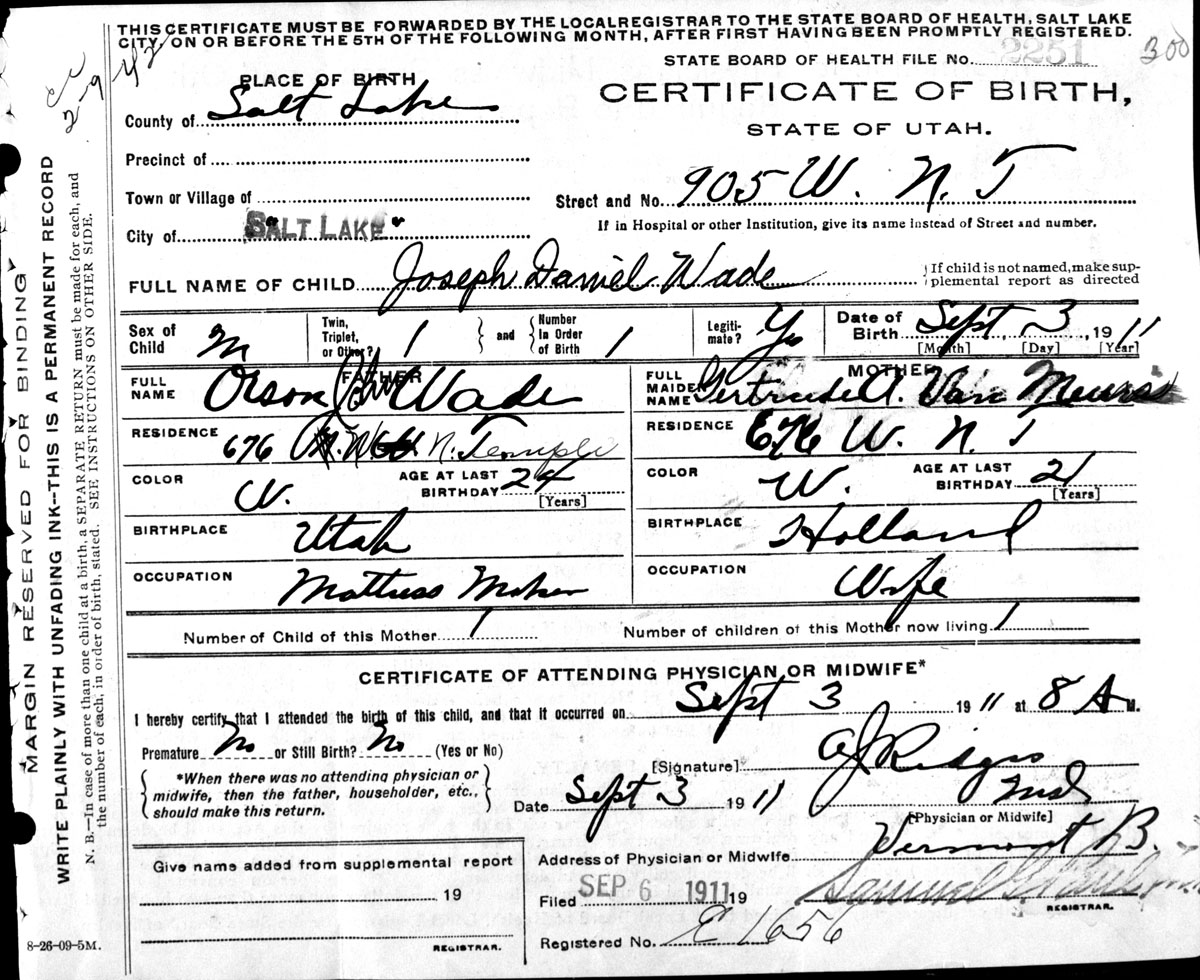 THIS CERTIFICATE MUST BE FORWARDED BY THE LOCAL REGISTRAR TO THE STATE BOARD OF HEALTH, SALT LAKE
CITY, ON OR BEFORE THE 5TH OF THE FOLLOWING MONTH, AFTER FIRST HAVING BEEN PROMPTLY REGISTERED.
STATE BOARD OF HEALTH FILE No. 2251 300
PLACE OF BIRTH
CERTIFICATE OF BIRTH,
STATE OF UTAH.
County of Salt Lake
Precinct of
Town or Village of
Street and No. 905 W. N. T
City of SALT LAKE
If in Hospital or other Institution, give its name instead of Street and number.
FULL NAME OF CHILD Joseph Daniel Wade
If child is not named, make supplemental report as directed
Sex of Child M Twin, Triplet, or Other? 1 and Number In Order of Birth 1 Legitimate? Yes Date of Birth Sept 3, 1911
[Month] [Day] [Year]
FATHER MOTHER
FULL NAME Orson Wade FULL MAIDEN NAME Gertrude A. Van
RESIDENCE 676 N. Temple RESIDENCE 676 W. N. T
COLOR W. AGE AT LAST BIRTHDAY 24 [Years] COLOR W. AGE AT LAST BIRTHDAY 21 [Years]
BIRTHPLACE Utah BIRTHPLACE Holland
OCCUPATION Mattress Maker OCCUPATION Wife
Number of Child of this Mother 1 Number of children of this Mother now living 1
CERTIFICATE OF ATTENDING PHYSICIAN OR MIDWIFE*
I hereby certify that I attended the birth of this child, and that it occurred on Sept 3 1911 at 8 A M.
Premature No or Still Birth? No (Yes or No)
*When there was no attending physician or
midwife, then the father, householder, etc.,
should make this return.
[Signature]
Date Sept 3 1911
[Physician or Midwife]
Address of Physician or Midwife Vermont B.
Give name added from supplemental report
19
REGISTRAR.
Filed SEP 6 1911 19 Samuel
REGISTRAR.
Registered No. E 1656
8-26-09-5M.
MARGIN RESERVED FOR BINDING
WRITE PLAINLY WITH UNFADING INK--THIS IS A PERMANENT RECORD
N. B.—In case of more than one child at a birth, a SEPARATE RETURN must be made for each, and
the number of each, in order of birth, stated. SEE INSTRUCTIONS ON OTHER SIDE.